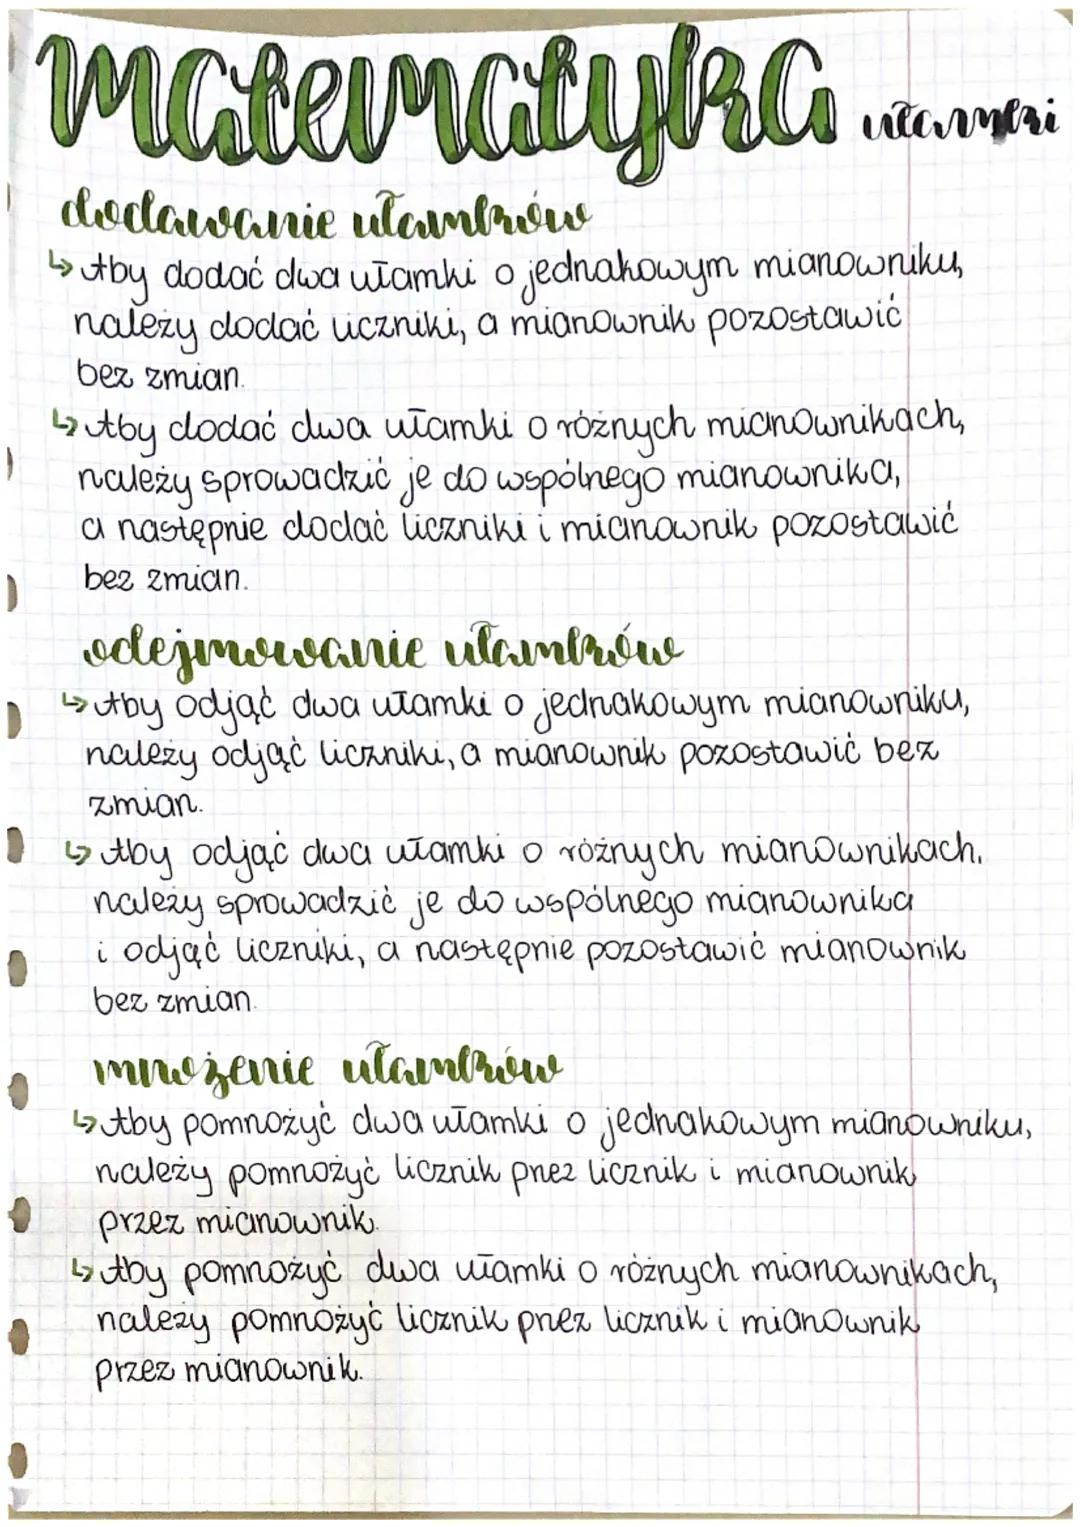 matematyka ułamki
dodawanie ułamków
↳ Aby dodać dwa ułamki o jednakowym mianowniku,
należy dodać liczniki, a mianownik pozostawić
bez zmian.
↳ Aby dodać dwa ułamki o różnych mianownikach,
należy sprowadzić je do wspólnego mianownika,
a następnie dodać liczniki i mianownik pozostawić
bez zmian.
odejmowanie ułamków
↳ Aby odjąć dwa ułamki o jednakowym mianowniku,
należy odjąć liczniki, a mianownik pozostawić bez
zmian.
↳ Aby odjąć dwa ułamki o różnych mianownikach,
należy sprowadzić je do wspólnego mianownika
i odjąć liczniki, a następnie pozostawić mianownik
bez zmian.
mnożenie ułamków
↳ Aby pomnożyć dwa ułamki o jednakowym mianowniku,
należy pomnożyć licznik przez licznik i mianownik
przez mianownik.
↳ Aby pomnożyć dwa ułamki o różnych mianownikach,
należy pomnożyć licznik przez licznik i mianownik
przez mianownik.